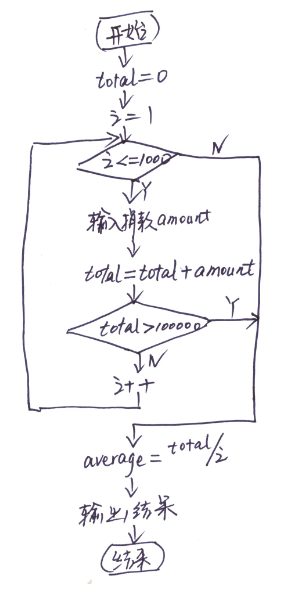 开始
total=0
i=1
i<=1000
N
Y
输入捐款amount
total=total+amount
total>100000
Y
N
i++
average=total/i
输出结果
结束